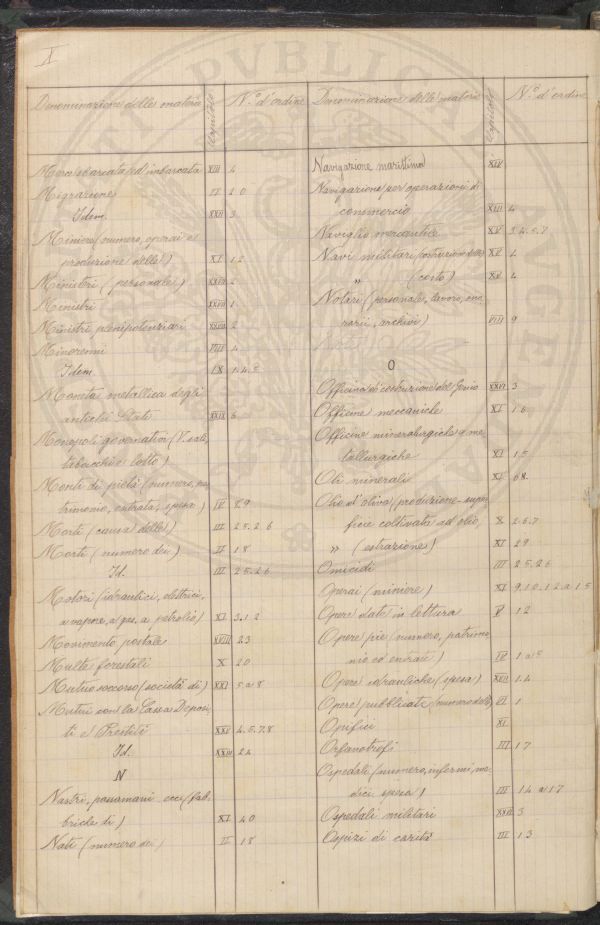 X
Denominazione delle materie Capitolo N.º d'ordine
Merce sbarcata ed imbarcata XIII 4
Migrazione II 20
Idem XXII 3
Miniere (numero, operai e
produzione delle) XI 12
Ministeri (personale) XXVII 2
Ministri XXVII 1
Ministri plenipotenziari XXVII 2
Minorenni VIII 4
Idem IX 1.4.5
Moneta metallica degli
antichi Stati XXIX 5
Monopoli governativi (V. sali,
tabacchi e lotto)
Monti di pietà (numero, pa-
trimonio, entrata, spesa) IV 29
Morti (causa delle) III 25.26
Morti (numero dei) II 18
Id. III 25.26
Motori (idraulici, elettrici,
a vapore, a gas, a petrolio) XI 3.12
Movimento postale XVIII 23
Multe forestali X 20
Mutuo soccorso (società di) XXI 5 a 8
Mutui con la Cassa Deposi-
ti e Prestiti XXV 4.5.7.8
Id. XXIII 24
N
Nastri, passamani ecc. (fab-
briche di) XI 40
Nati (numero dei) II 18
Denominazione delle materie Capitolo N.º d'ordine
Navigazione marittima XIV
Navigazione per operazioni di
commercio XIII 4
Naviglio mercantile XV 3.4.5.7
Navi militari (costruzione delle) XV 4
" (costo) XV 4
Notari (personale, lavoro, ono-
rarii, archivi) VIII 9
O
Officina di costruzione del Genio XXVI 3
Officine meccaniche XI 16
Officine mineralurgiche e me-
tallurgiche XI 15
Oli minerali XI 68
Olio d'oliva (produzione - super-
ficie coltivata ad olio, X 2.6.7
" (estrazione) XI 29
Omicidi III 25.26
Operai (miniere) XI 9.10.12 a 15
Opere date in lettura V 12
Opere pie (numero, patrimo-
nio ed entrate) IV 1 a 5
Opere idrauliche (spesa) XVII 14
Opere pubblicate (numero delle) VI 1
Opifici XI
Orfanotrofi III 17
Ospedali (numero, infermi, me-
dici, spesa) III 14 a 17
Ospedali militari XXVI 3
Ospizi di carità III 13